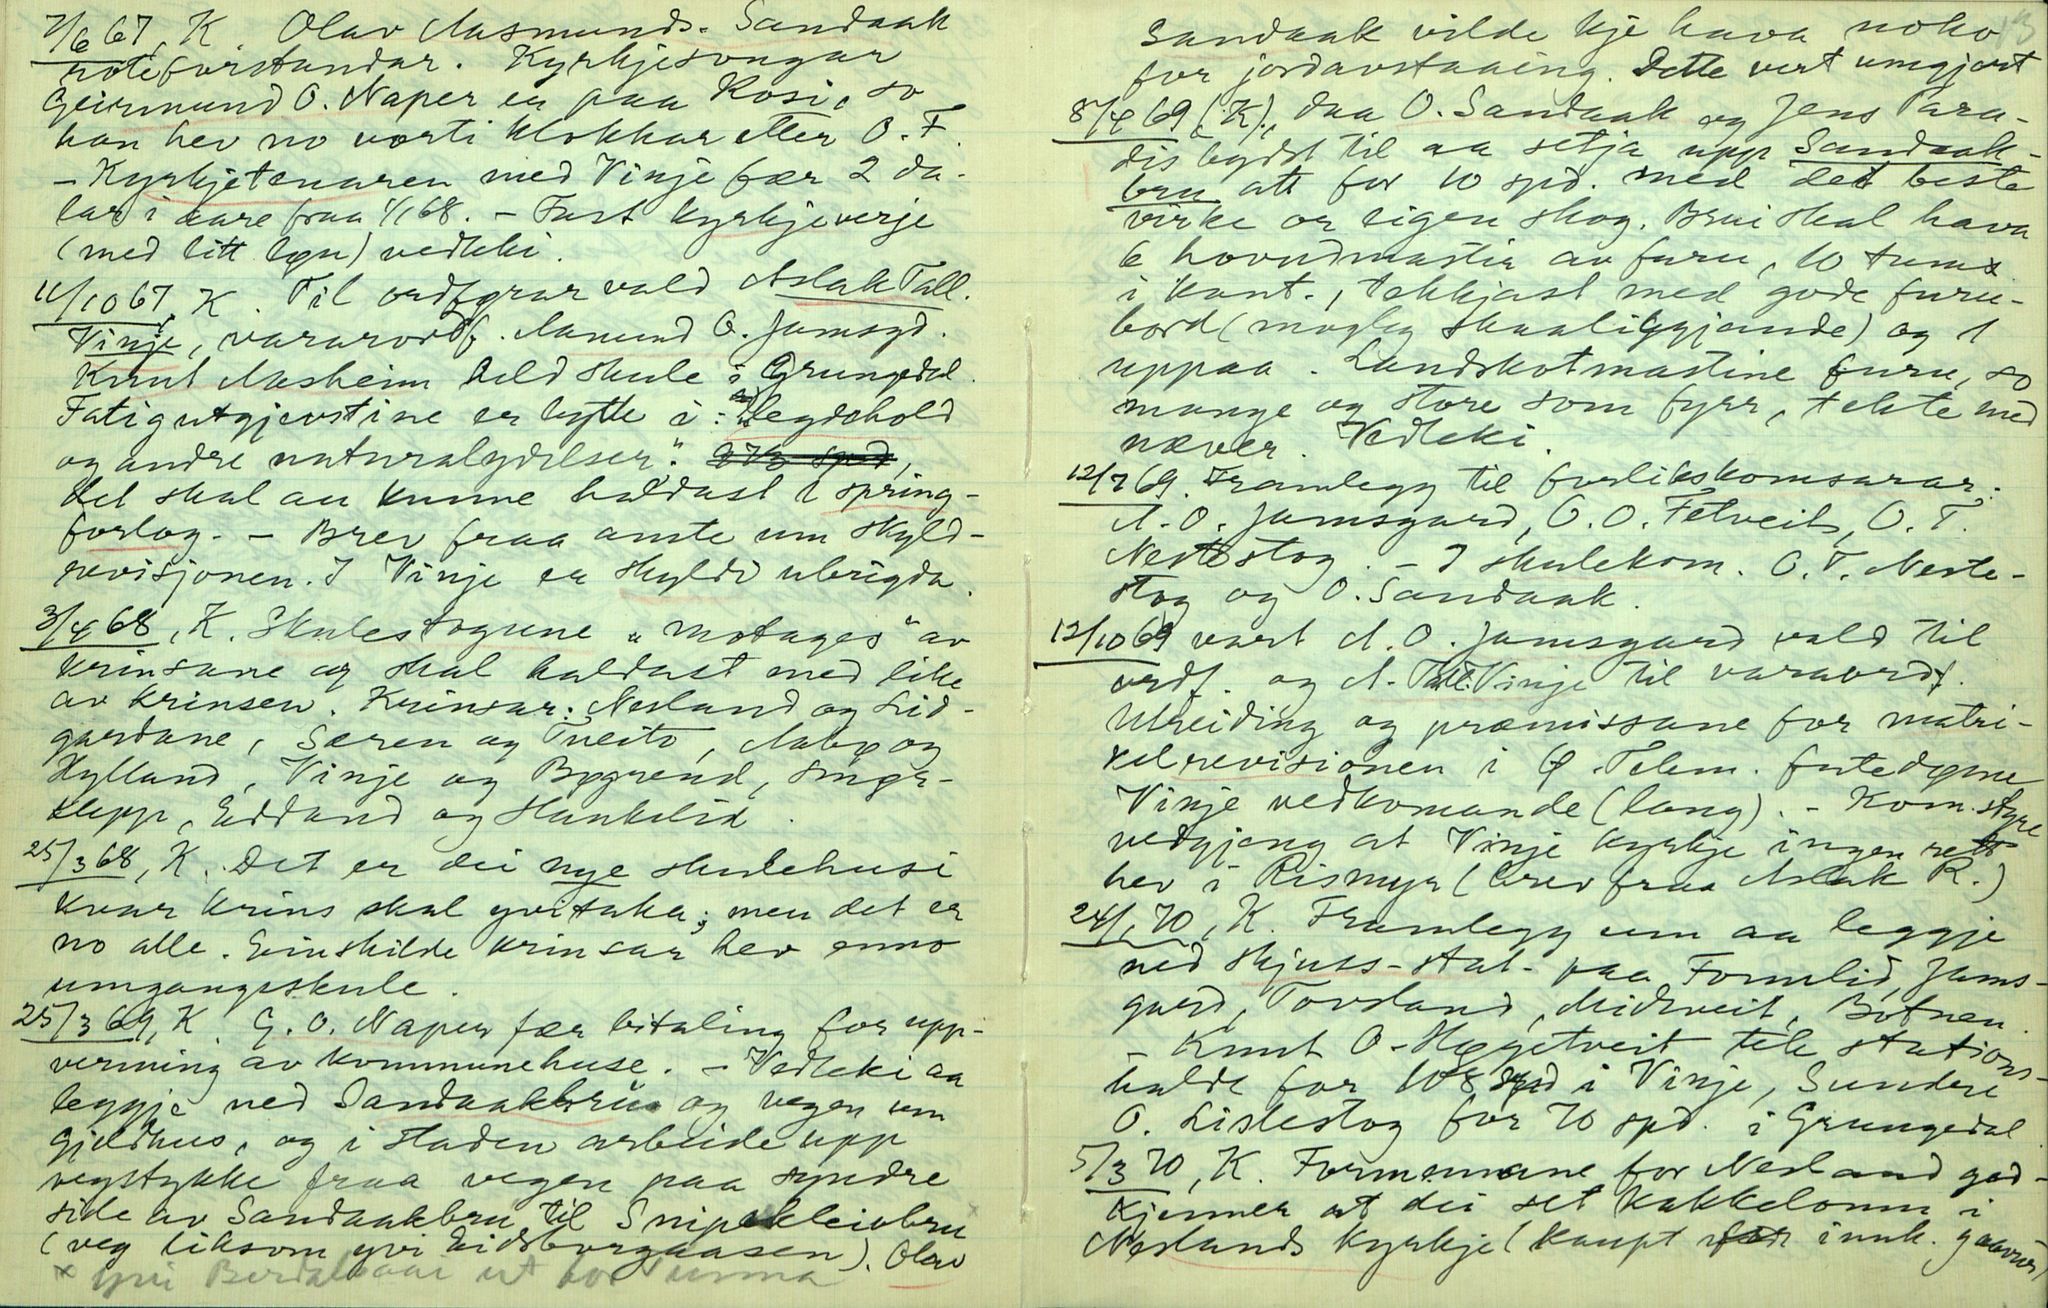 7/6 67, K. Olav Aasmunds. Sandaak
roteforstandar. Kyrkjesongar
Geirmund O. Naper er paa Kosi, so
han hev no vorti klokkar etter O. F.
- Kyrkjetenaren med Vinje fær 2 da-
lar i aare fraa 1/1 68. - Fast kyrkjeverje
(med litt løn) vedteki.
11/10 67, K. Til ordførar vald Aslak Tall.
Vinje, varaordf. Aamund O. Jamsgd.
Knut Aasheim held skule i Grungedal.
Fatigutgjevstine er bytte i: "Legdehold
og andre naturalydelser".
det skal au kunne haldast i spring-
forlag. - Brev fraa amte um skyld-
revisjonen. I Vinje er skyldi ubrigda.
3/4 68, K. Skulestogune "motages" av
krinsane og skal haldast med like
av krinsen. Krinsar: Nesland og Lid-
gardane, Særen og Tveito, Aabø og
Hylland, Vinje og Bøgrend, Smør-
klepp, Edland og Haukelid.
25/3 68, K. Det er dei nye skulehusi
kvar krins skal yvitaka; men det er
no alle. Einskilde krinsar hev enno
umgangsskule.
25/3 69, K. G. O. Naper fær bitaling for upp-
verming av kommunehuse. - Vedteki aa
leggje ned Sandaakbrui og vegen um
Gjeldhus, og i staden arbeide upp
vegstykke fraa vegen paa syndre
side av Sandaakbru til Snipekleivbru x
(veg liksom yvi Eidsborgaasen). Olav
x yvi Berdal ut for
Sandaak vilde kje hava noko 13
for jordavstaaing. Dette vert umgjort
8/4 69 (K), daa O. Sandaak og Jens Para-
dis bydst til aa setja upp Sandaak-
bru att for 10 spd. med det beste
virke or eigen skog. Brui skal hava
6 hovudmastir av furu, 10 tum
i kant., tekkjast med gode furu-
bord (mogleg skaaliggjande) og 1
uppaa. Landskotmastine furu, so
mange og store som fyrr, tekte med
næver. Vedteki.
12/7 69. Framlegg til forlikskomsarar:
A. O. Jamsgard, O. O. Felveit, O. T.
Nestestog. - I skulekom. O. T. Neste-
stog og O. Sandaak.
12/10 69 vart A. O. Jamsgard vald til
ordf. og A. Tall. Vinje til varaordf.
Utreiding og præmissane for matri-
kelrevisionen i Ø. Telem. futedøme
Vinje vedkomande (lang). - Kom.styre
vedgjeng at Vinje kyrkje ingen rett
hev i Rismyr (brev fraa Aslak R.)
24/1 70, K. Framlegg um aa leggje
ned skjuss-stat. paa Formlid, Jams-
gard, Torsland, Midtveit, Botnen.
- Knut O. Heggtveit tek stations-
halde for 108 spd i Vinje, Sundre
O. Listestog for 70 spd. i Grungedal.
5/3 70, K. Formennane for Nesland god-
kjenner at dei set kakkelomn i
Neslands kyrkje (kaupt innk. gaavur)